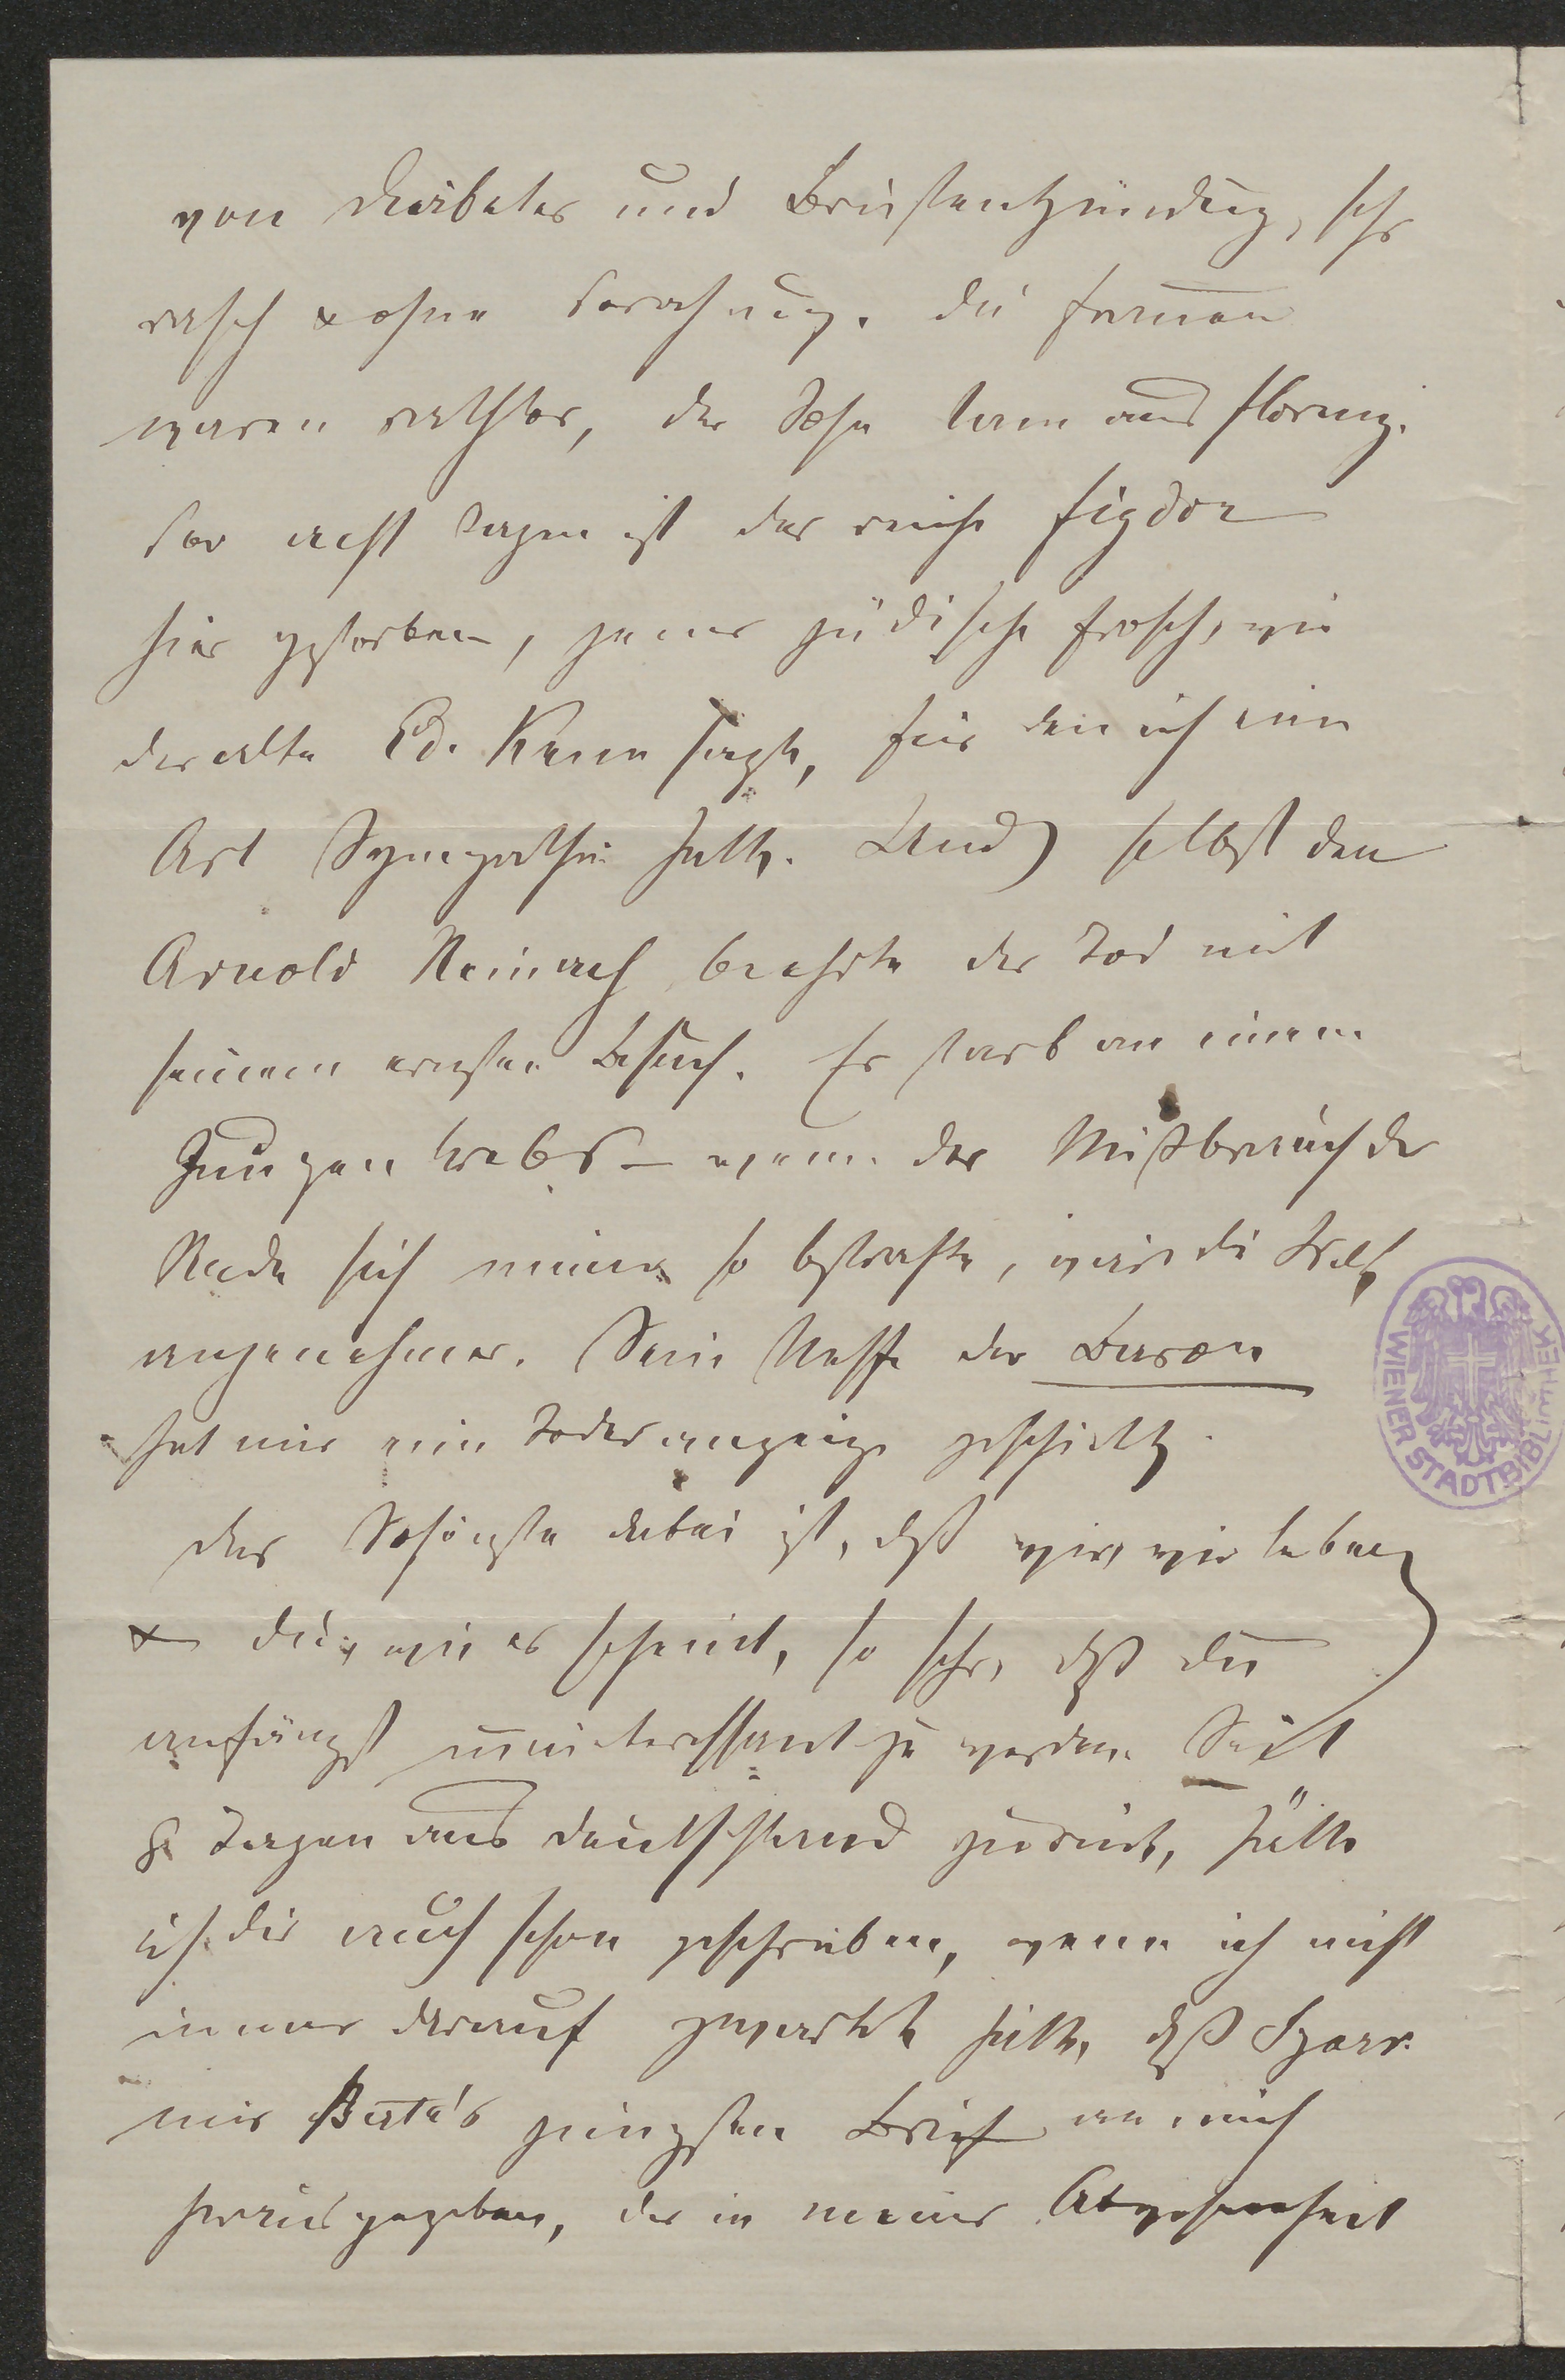 von Diabetes und Brustentzündung, sehr
rasch & ohne Vorahnung. Die Frauen
waren rathlos, der Sohn kam aus Florenz.
Vor acht Tagen ist der reiche Figdor
hier gestorben, jener jüdische Frosch, wie
der alte Ed. Kann sagte, für den ich eine
Art Sympathie hatte. Und selbst den
Arnold Reinach beehrte der Tod mit
seinem ernsten Besuch. Er starb an einem
Zungenkrebs – wenn der Mißbrauch der
Rede sich immer so bestrafte, wär die Welt
angenehmer. Sein Neffe der Baron
hat mir eine Todesanzeige geschickt.
Das Schönste dabei ist, daß wir, wir leben
& Du, wie es scheint, so sehr, daß Du
anfängst uninteressant zu werden. Seit
8 Tagen aus Deutschland zurück, hätte
ich Dir auch schon geschrieben, wenn ich nicht
immer darauf gewartet hätte, daß
mir Berta's jüngsten Brief an mich
herausgegeben, der in meiner Abwesenheit
WIENER STADTBIBLIOTHEK